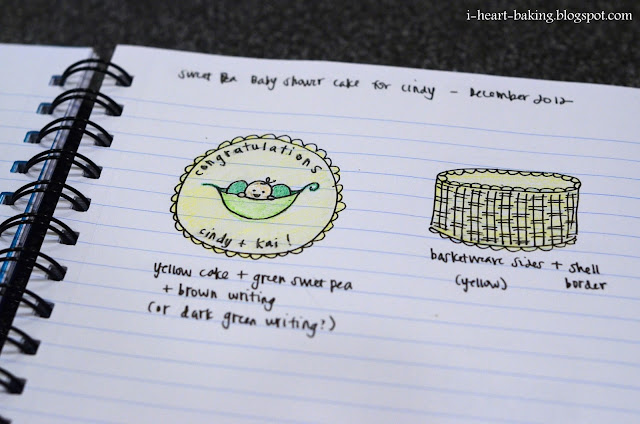 i-heart-baking.blogspot.com
sweet pea baby shower cake for cindy - december 2012
congratulations
cindy + kai!
yellow cake + green sweet pea
+ brown writing
(or dark green writing?)
basketweave sides + shell
(yellow) border